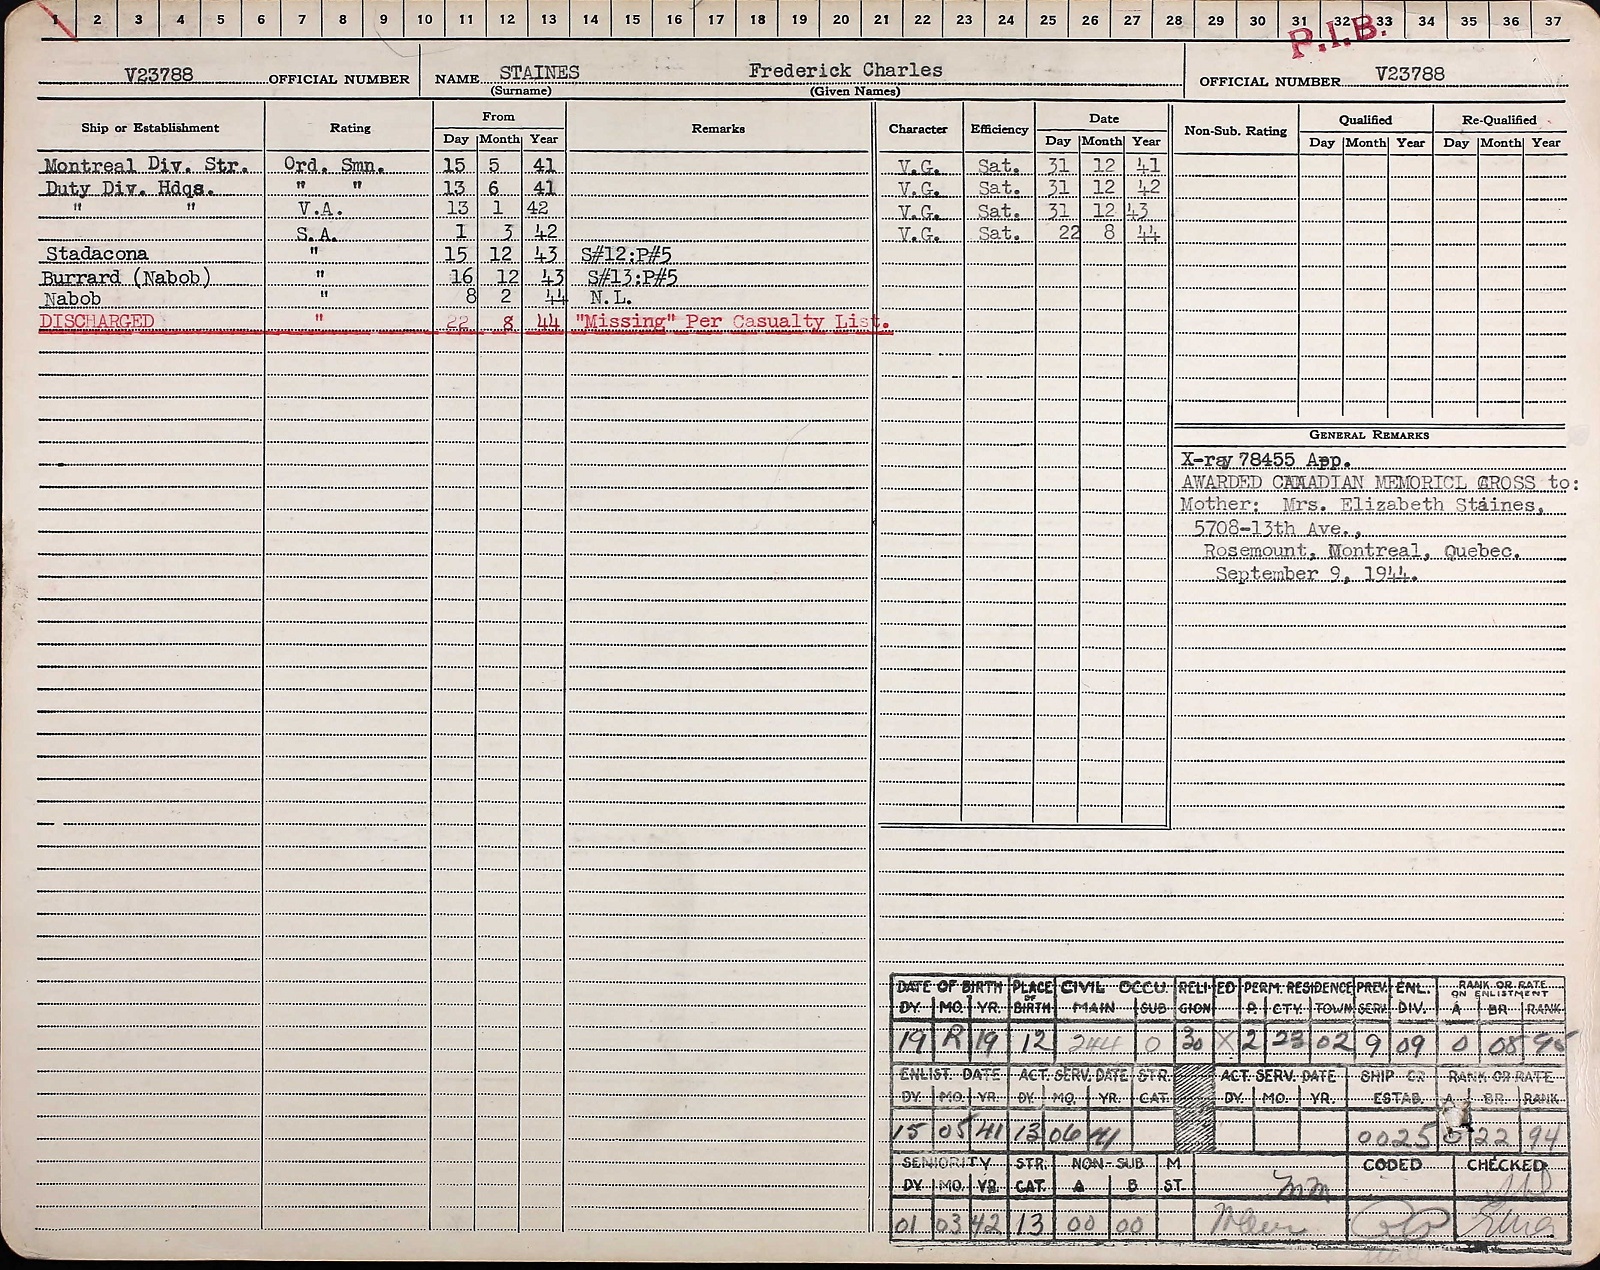 1 2 3 4 5 6 7 8 9 10 11 12 13 14 15 16 17 18 19 20 21 22 23 24 25 26 27 28 29 30 31 32 33 34 35 36 37
P.I.B.
V23788 OFFICIAL NUMBER NAME STAINES Frederick Charles OFFICIAL NUMBER V23788
(Surname) (Given Names)
Ship or Establishment Rating From Remarks Character Efficiency Date Non-Sub. Rating Qualified Re-Qualified
Day Month Year Day Month Year Day Month Year Day Month Year
Montreal Div. Str. Ord. Smn. 15 5 41 V.G. Sat. 31 12 41
Duty Div. Hdqs. " " 13 6 41 V.G. Sat. 31 12 42
" " V.A. 13 1 42 V.G. Sat. 31 12 43
S.A. 1 3 42 V.G. Sat. 22 8 44
Stadacona " 15 12 43 S#12:P#5
Burrard (Nabob) " 16 12 43 S#13:P#5
Nabob " 8 2 44 N.L.
DISCHARGED " 22 8 44 "Missing" Per Casualty List.
GENERAL REMARKS
X-ray 78455 App.
AWARDED CANADIAN MEMORICL CROSS to:
Mother: Mrs. Elizabeth Staines,
5708-13th Ave.,
Rosemount, Montreal, Quebec.
September 9, 1944.
DATE OF BIRTH PLACE OF BIRTH CIVIL OCCU. RELIGION ED PERM. RESIDENCE PREV. SERV. ENL. DIV. RANK OR RATE ON ENLISTMENT
DY. MO. YR. MAIN SUB P. CTY. TOWN A BR. RANK
19 R 19 12 244 0 30 X 2 23 02 9 09 0 08 95
ENLIST. DATE ACT. SERV. DATE STR. ACT. SERV. DATE SHIP OR RANK OR RATE
DY. MO. YR. DY. MO. YR. CAT. DY. MO. YR. ESTAB. A BR. RANK
15 05 41 13 06 41 0025 0 22 94
SENIORITY STR. NON-SUB M CODED CHECKED
DY. MO. YR. CAT. A B ST.
01 03 42 13 00 00